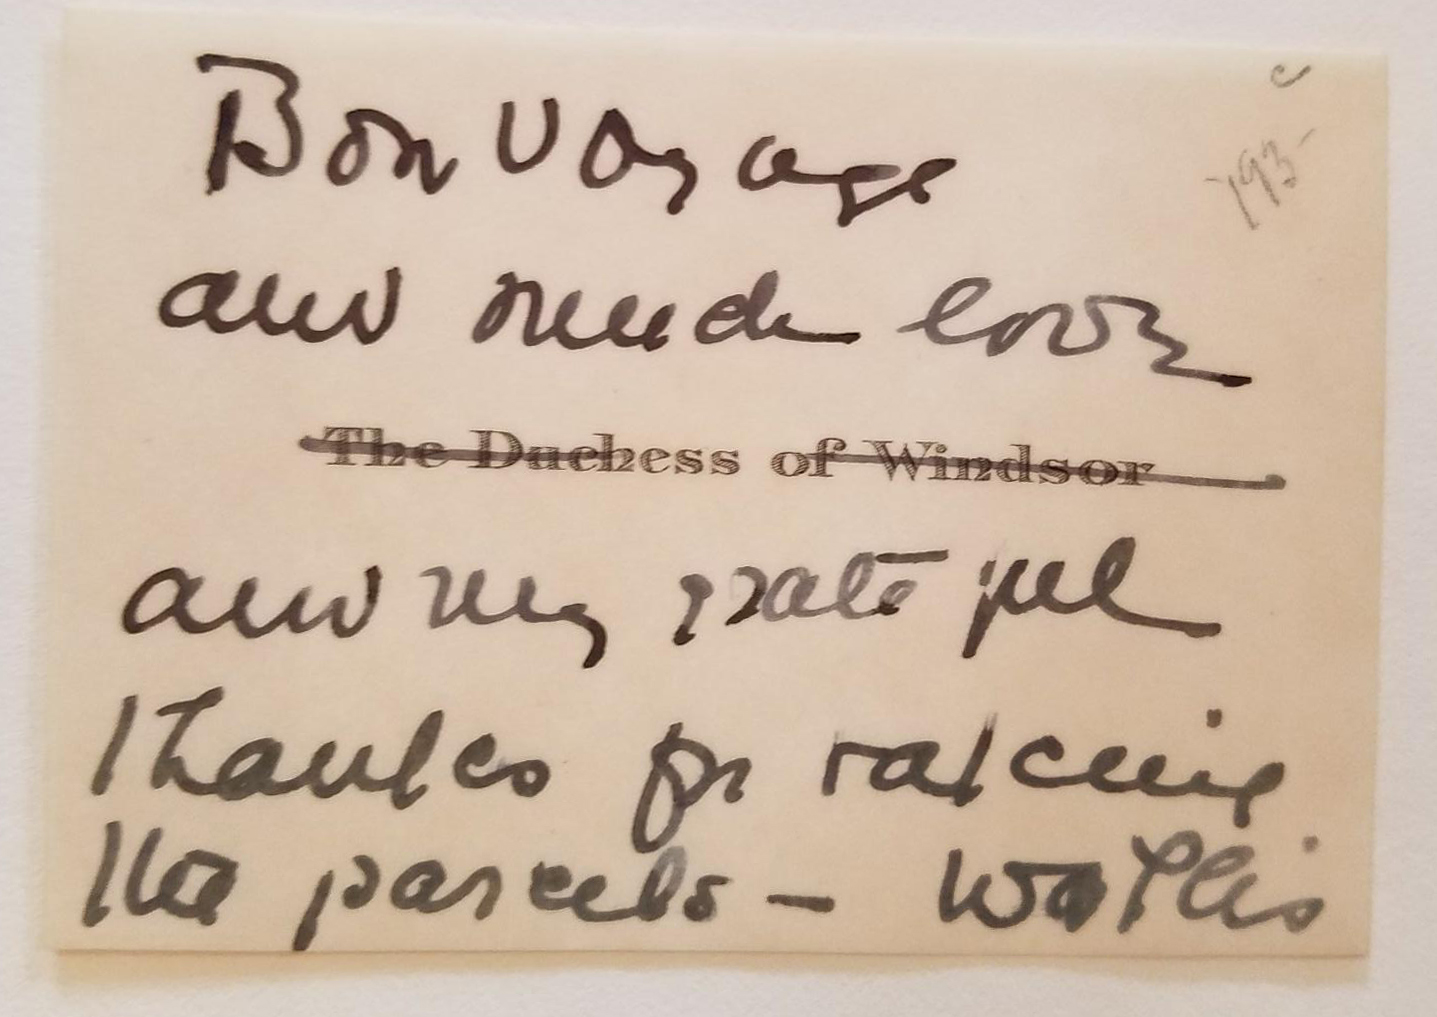 c
193-
Bon Voyage
and much love
The Duchess of Windsor
and my grateful
thanks for taking
the parcels – Wallis